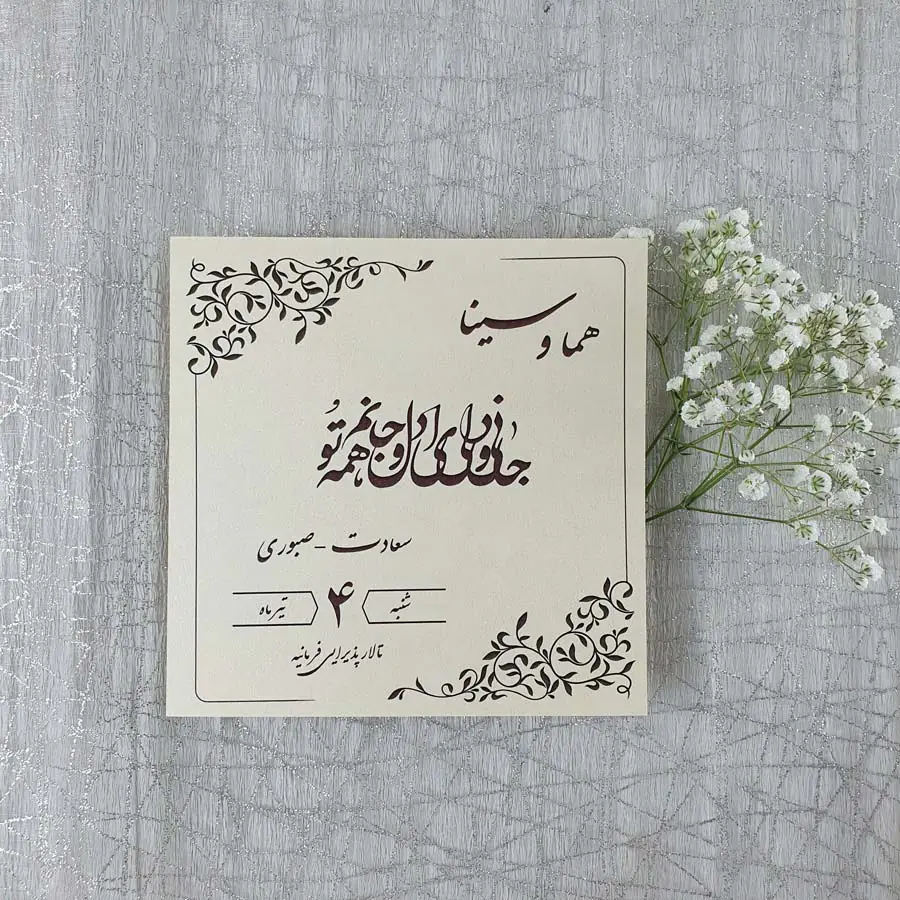 هما و سینا
جانی و دلی ای دل و جانم همه تو
سعادت - صبوری
شنبه ۴ تیر ماه
تالار پذیرایی فرمانیه